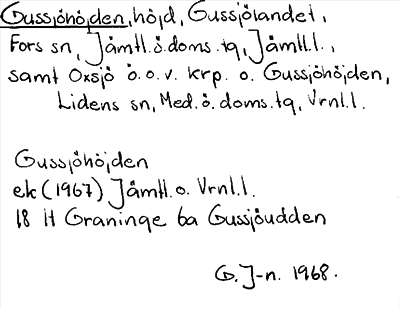 Gussjöhöjden, höjd, Gussjölandet,
Fors sn, Jämtl. ö. doms. tg, Jämtl.l.,
samt Oxsjö ö.o.v. krp. o. Gussjöhöjden,
Lidens sn, Med. ö. doms. tg, Vrnl.l.
Gussjöhöjden
ek (1967) Jämtl. o. Vrnl.l.
18 H Graninge 6a Gussjöudden
G. J-n. 1968.